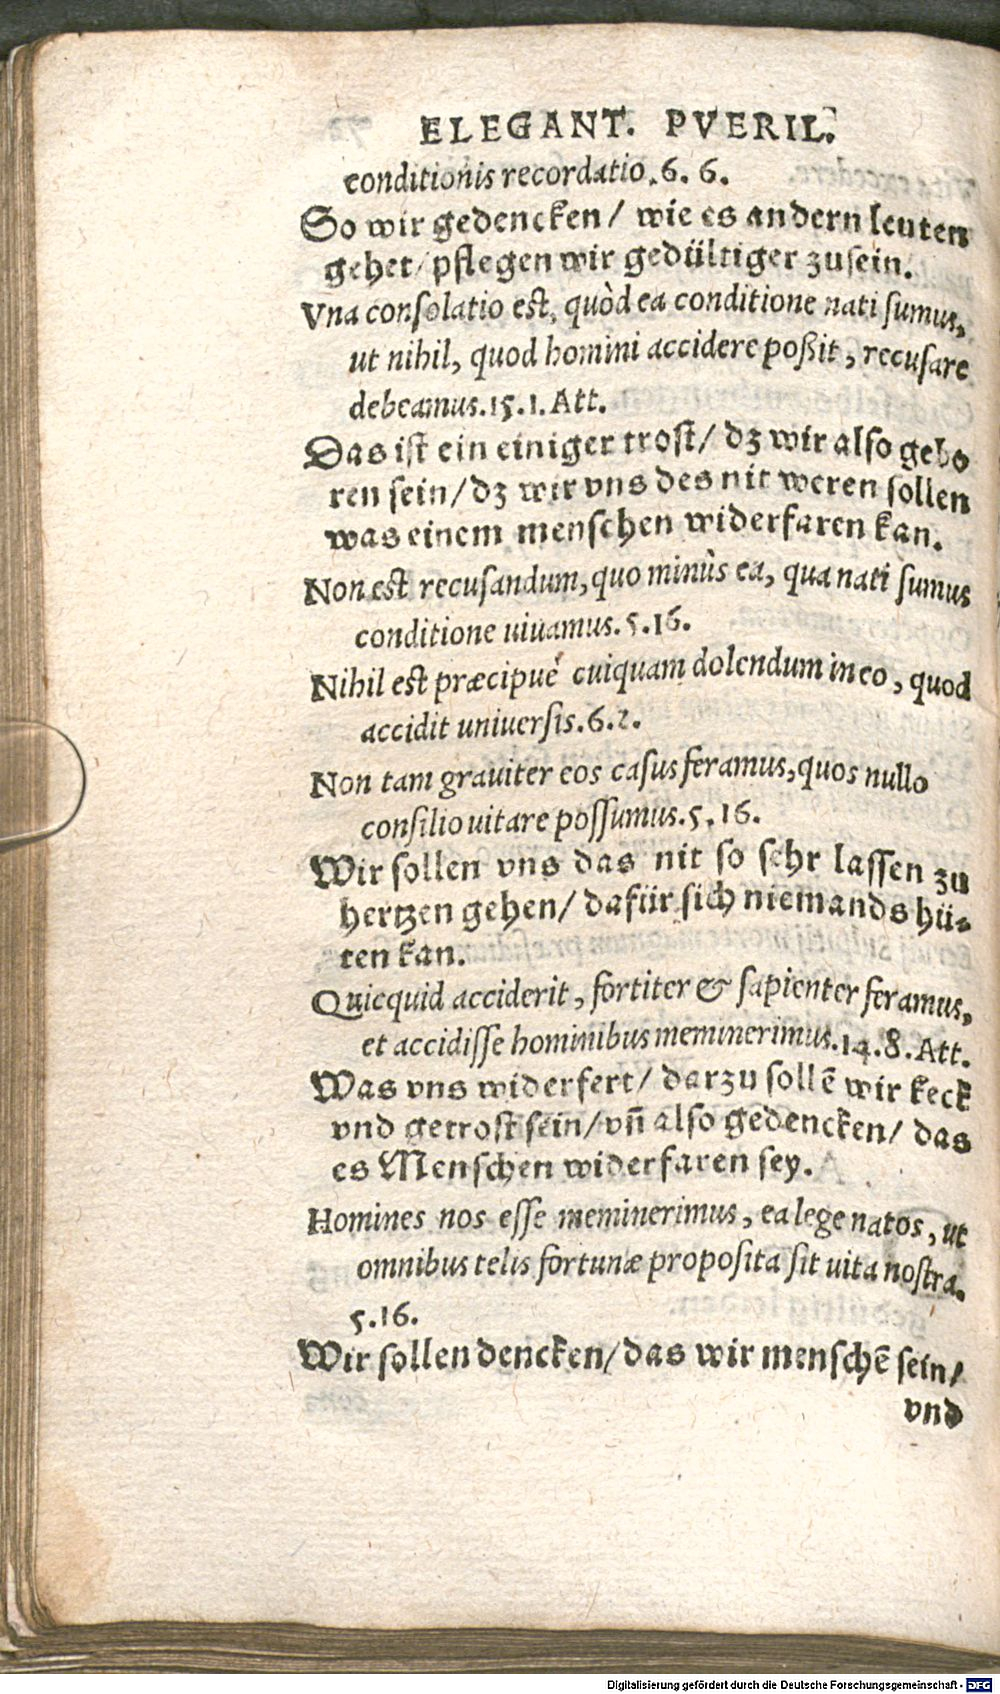 ELEGANT. PVERIL.
conditionis recordatio. 6. 6.
So wir gedencken/ wie es andern leuten
gehet/ pflegen wir gedültiger zusein.
Vna consolatio est, quòd ea conditione nati sumus,
ut nihil, quod homini accidere poßit, recusare
debeamus. 15. 1. Att.
Das ist ein einiger trost/ dz wir also gebo
ren sein/ dz wir vns des nit weren sollen
was einem menschen widerfaren kan.
Non est recusandum, quo minùs ea, qua nati sumus
conditione uiuamus. 5. 16.
Nihil est præcipuè cuiquam dolendum in eo, quod
accidit uniuersis. 6. 2.
Non tam grauiter eos casus feramus, quos nullo
consilio uitare possumus. 5. 16.
Wir sollen vns das nit so sehr lassen zu
hertzen gehen/ dafür sich niemands hü-
ten kan.
Quicquid acciderit, fortiter & sapienter feramus,
et accidisse hominibus meminerimus. 14. 8. Att.
Was vns widerfert/ darzu sollē wir keck
vnd getrost sein/ vñ also gedencken/ das
es Menschen widerfaren sey.
Homines nos esse meminerimus, ea lege natos, ut
omnibus telis fortunæ proposita sit uita nostra.
5. 16.
Wir sollen dencken/ das wir menschē sein/
vnd
Digitalisierung gefördert durch die Deutsche Forschungsgemeinschaft - DFG